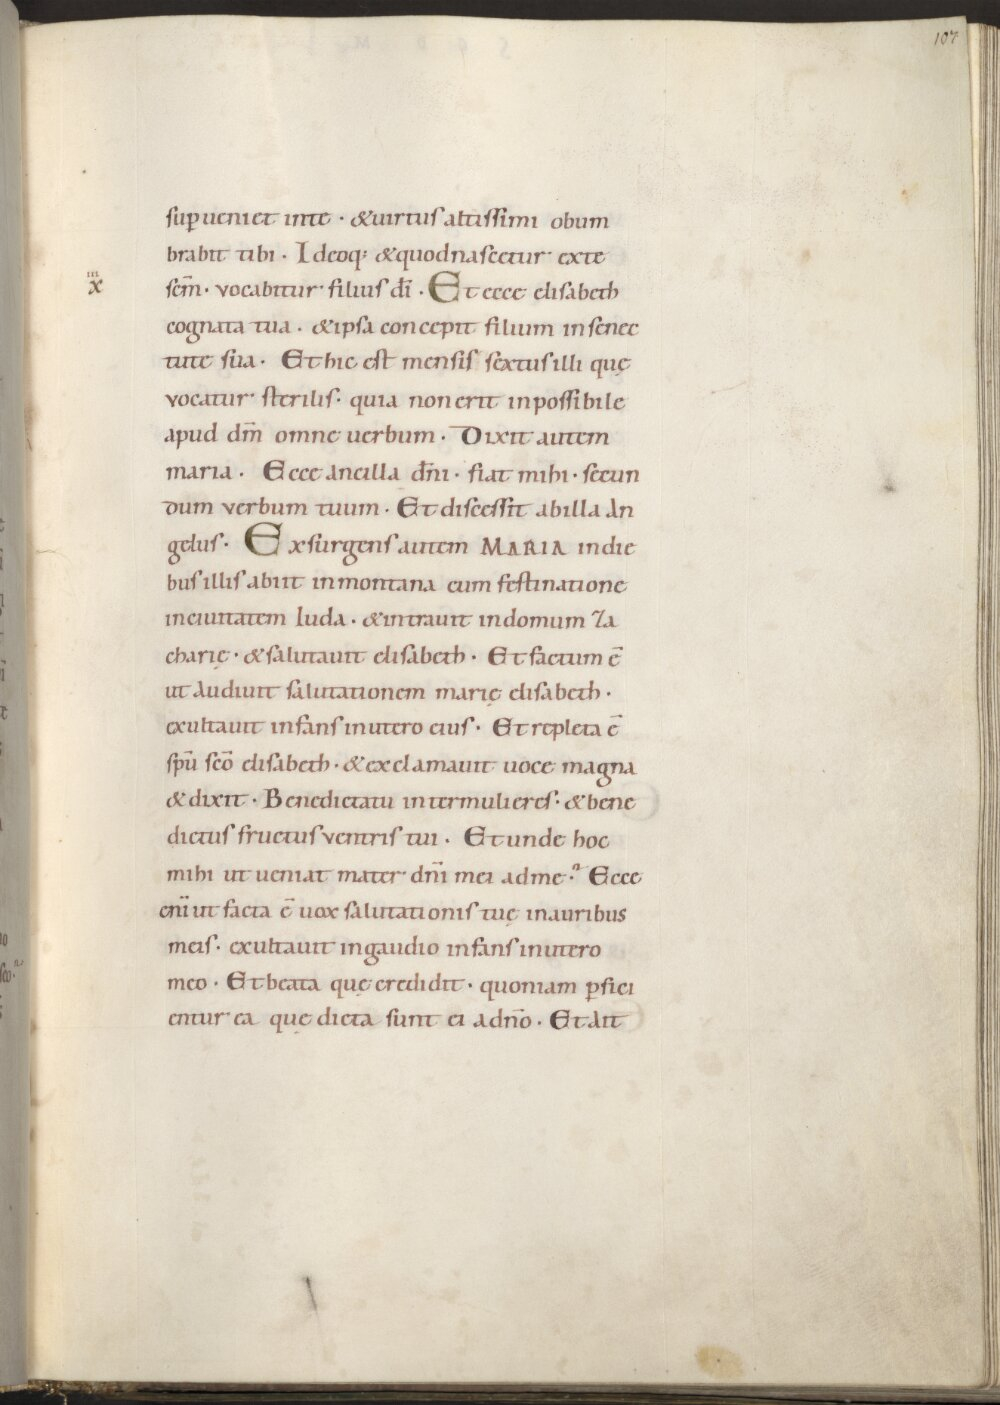 107
sup ueniet inte · &uirtus altissimi obum
brabit tibi · Ideoq; &quodnascetur exte
iii
x
scm̄ · vocabitur filius dī · Et ecce elisabeth
cognata tua · &ipsa concepit filium insenec
tute sua · Et hic est mensis sextus illi quę
vocatur sterilis · quia non erit inpossibile
apud dm̄ omne uerbum · Dixit autem
maria · Ecce ancilla dn̄i · fiat mihi · secun
dum verbum tuum · Et discessit abilla An
gelus · Exsurgens autem MARIA indie
bus illis abiit inmontana cum festinatione
inciuitatem Iuda · &intrauit indomum Za
charię · &salutauit elisabeth · Et factum ē
ut Audiuit salutationem marię elisabeth ·
exultauit infans inutero eius · Et repleta ē
spū scō elisabeth · &exclamauit uoce magna
&dixit · Benedictatu intermulieres · &bene
dictus fructus ventris tui · Et unde hoc
mihi ut ueniat mater dn̄i mei adme · Ecce
eni ut facta ē uox salutationis tuę inauribus
meis · exultauit ingaudio infans inutero
meo · Et beata quę credidit · quoniam ꝑfici
entur ea quę dicta sunt ei adn̄o · Et Ait